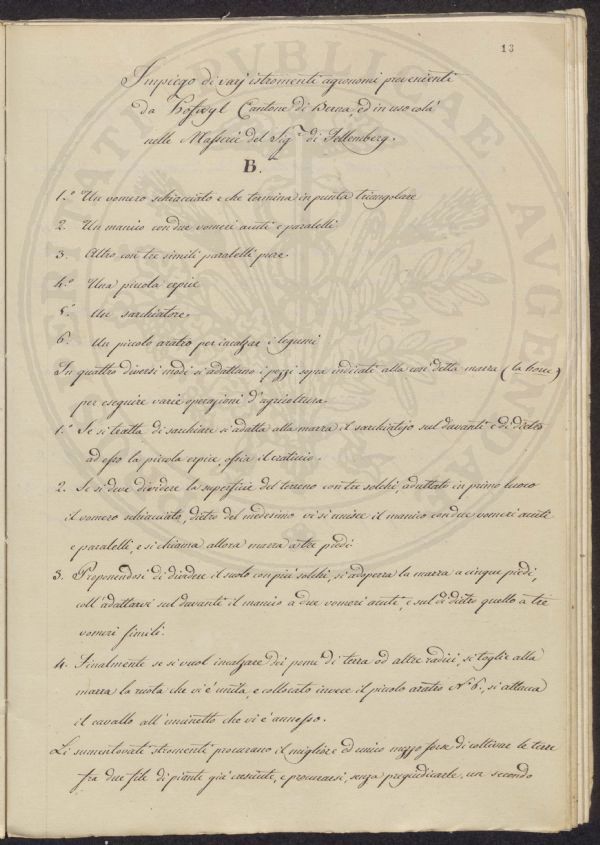 13
Impiego di varj istromenti agronomi provenienti
da Hofwyl Cantone di Berna, ed in uso colà
nelle Masserie del Sigr. di Fellemberg.
B.
1.° Un vomero schiacciato e che termina in punta triangolare
2. Un manico con due vomeri acuti e paralelli
3. Altro con tre simili paralelli pure.
4.° Una piccola erpice
5.° Un sarchiatore.
6.° Un piccolo aratro per incalzar i legumi
In quattro diversi modi si adattano i pezzi sopra indicati alla così detta marra (la houe)
per eseguire varie operazioni d'agricoltura.
1.° Se si tratta di sarchiare si adatta alla marra il sarchiatojo sul davanti e di dietro
ad esso la piccola erpice, ossia il craticcio.
2. Se si deve dividere la superficie del terreno con tre solchi, adattato in primo luoco
il vomero schiacciato, dietro del medesimo vi si unisce il manico con due vomeri acuti
e paralelli, e si chiama allora marra a tre piedi
3. Proponendosi di dividere il suolo con più solchi, si adoperra la marra a cinque piedi,
coll'adattarvi sul davanti il manico a due vomeri acuti, e sul di dietro quello a tre
vomeri simili.
4. Finalmente se si vuol incalzare dei pomi di terra od altre radici, si toglie alla
marra la ruota che vi è unita, e collocato invece il piccolo aratro N.° 6. si attacca
il cavallo all' che vi è annesso.
Li sumentovati stromenti procurano il migliore ed unico mezzo forse di coltivare le terre
fra due file di piante già cresciute, e procurarsi, senza pregiudicarle, un secondo
PRIVATI PUBLICAE AUGENDA